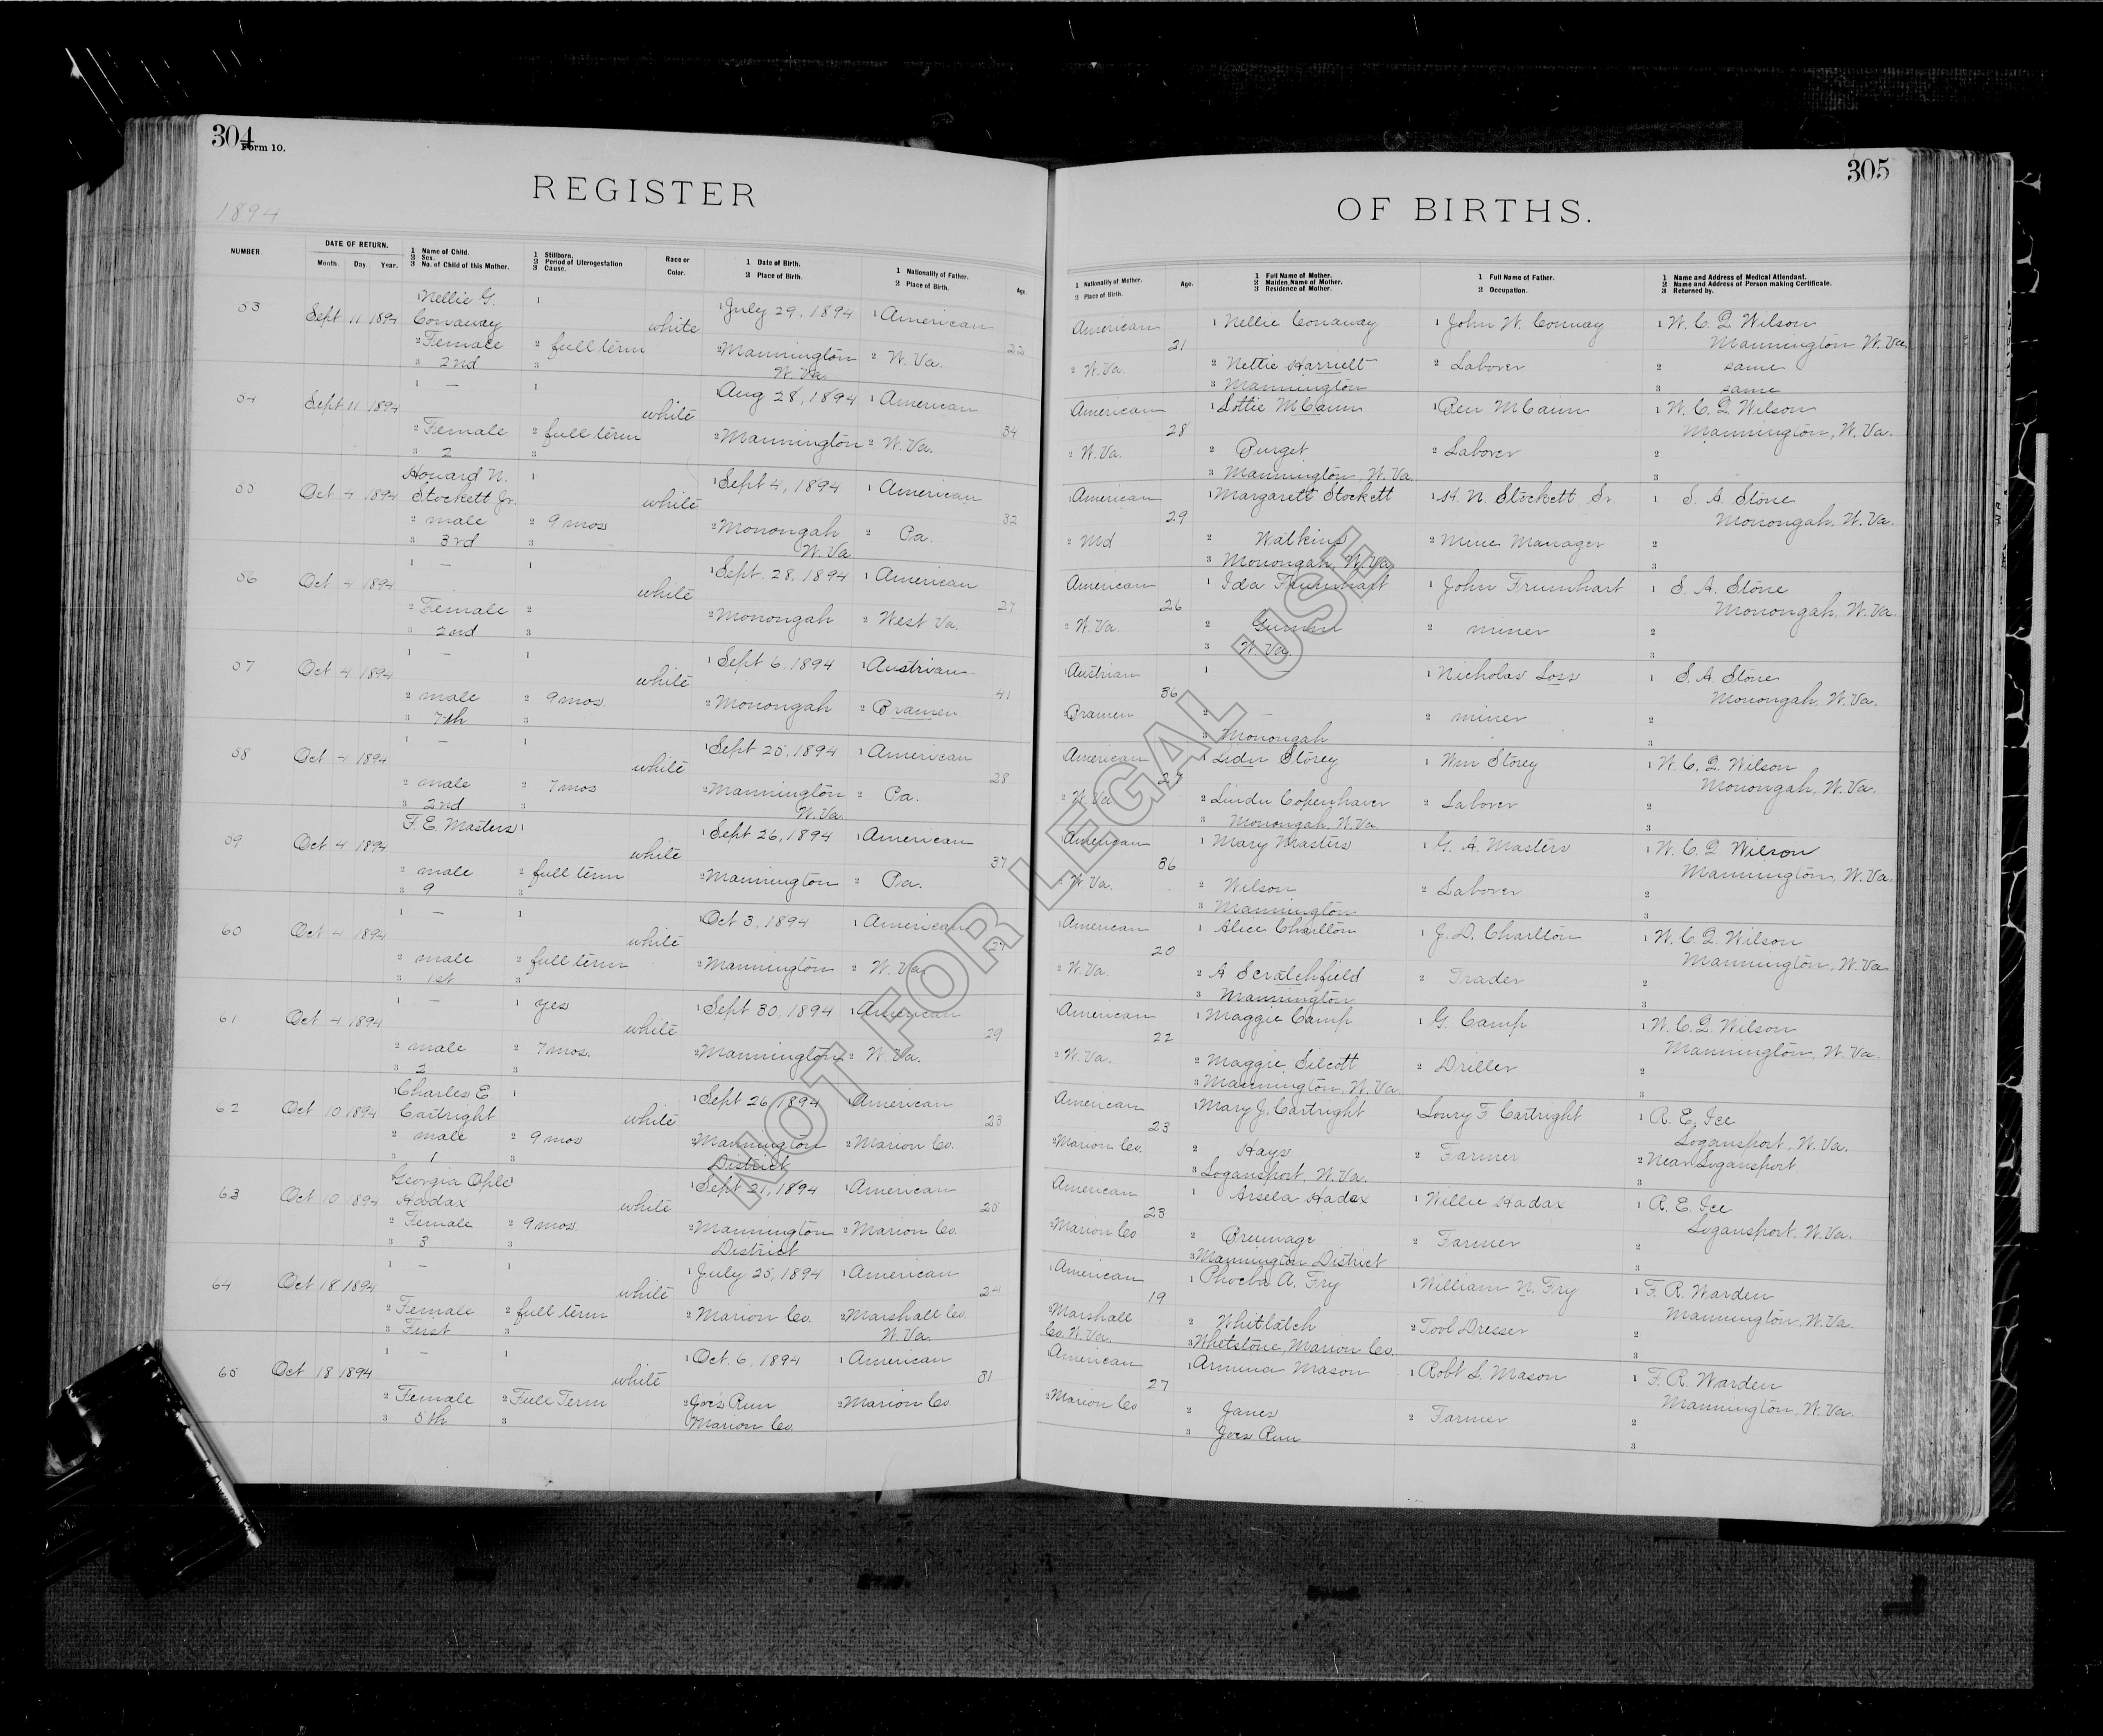 304
Form 10.
REGISTER
1894
NUMBER.
DATE OF RETURN.
Month. Day. Year.
1 Name of Child.
2 Sex.
3 No. of Child of this Mother.
1 Stillborn.
2 Period of Uterogestation
3 Cause.
Race or
Color.
1 Date of Birth.
2 Place of Birth.
1 Nationality of Father.
2 Place of Birth.
Age.
53 Sept 11 1894
1 Nellie G.
Conaway
2 Female
3 2nd
1
2 full term
3
white
1 July 29, 1894
2 Mannington
W. Va.
1 American
2 W. Va.
22
54 Sept 11 1894
1 —
2 Female
3 2
1
2 full term
3
white
Aug 28, 1894
2 Mannington
1 American
2 W. Va.
34
55 Oct 4 1894
Howard N.
Stockett Jr.
2 male
3 3rd
1
2 9 mos
3
white
1 Sept 4, 1894
2 Monongah
W. Va.
1 American
2 Pa.
32
56 Oct 4 1894
1 —
2 Female
3 2nd
1
2
3
white
1 Sept. 28, 1894
2 Monongah
1 American
2 West Va.
27
57 Oct 4 1894
1 —
2 male
3 7th
1
2 9 mos.
3
white
1 Sept 6, 1894
2 Monongah
1 Austrian
2 Bramen
41
58 Oct 4 1894
1 —
2 male
3 2nd
1
2 7 mos
3
white
1 Sept 25, 1894
2 Mannington
W. Va.
1 American
2 Pa.
28
59 Oct 4 1894
F. E. Masters
2 male
3 9
1
2 full term
3
white
1 Sept 26, 1894
2 Mannington
1 American
2 Pa.
37
60 Oct 4 1894
1 —
2 male
3 1st
1
2 full term
3
white
1 Oct 3, 1894
2 Mannington
1 American
2 W. Va.
61 Oct 4 1894
1 —
2 male
3 2
1 yes
2 7 mos.
3
white
1 Sept 30, 1894
2 Mannington
1 American
2 W. Va.
29
62 Oct 10 1894
1 Charles E.
Cartright
2 male
3 1
1
2 9 mos
3
white
1 Sept 26, 1894
2 Mannington
District
1 American
2 Marion Co.
23
63 Oct 10 1894
Georgia Ople
Hadax
2 Female
3 3
2 9 mos.
3
white
1 Sept 21, 1894
2 Mannington
District
1 American
2 Marion Co.
25
64 Oct 18 1894
1 —
2 Female
3 First
1
2 full term
3
white
1 July 25, 1894
2 Marion Co.
1 American
2 Marshall Co.
W. Va.
24
65 Oct 18 1894
1 —
2 Female
3 5th
1
2 Full Term
3
white
1 Oct. 6, 1894
2 Joes Run
Marion Co.
1 American
2 Marion Co.
31
305
OF BIRTHS.
1 Nationality of Mother.
2 Place of Birth.
Age.
1 Full Name of Mother.
2 Maiden Name of Mother.
3 Residence of Mother.
1 Full Name of Father.
2 Occupation.
1 Name and Address of Medical Attendant.
2 Name and Address of Person making Certificate.
3 Returned by.
American
2 W. Va.
21
1 Nellie Conaway
2 Nettie Harriett
3 Mannington
1 John W. Conway
2 Laborer
1 W. C. Q Wilson
Mannington W. Va.
2 same
3 same
American
2 W. Va.
28
1 Lottie McCann
2 Purget
3 Mannington, W. Va.
1 Ben McCann
2 Laborer
1 W. C. Q Wilson
Mannington, W. Va.
2
3
American
2 Md
29
1 Margarett Stockett
2 Watkins
3 Monongah, W. Va.
1 H. N. Stockett Sr.
2 Mine Manager
1 S. A. Stone
Monongah, W. Va.
2
3
American
2 W. Va.
26
1 Ida Frumhart
2
3 W. Va.
1 John Frumhart
2 miner
1 S. A. Stone
Monongah, W. Va.
2
3
Austrian
Bramen
36
1
2 —
3 Monongah
1 Nicholas Loss
2 miner
1 S. A. Stone
Monongah, W. Va.
2
3
American
2 W. Va.
27
1 Storey
2 Copenhaver
3 Monongah, W. Va.
1 Wm Storey
2 Laborer
1 W. C. Q. Wilson
Monongah, W. Va.
2
3
American
2 W. Va.
36
1 Mary Masters
2 Wilson
3 Mannington
1 G. A. Masters
2 Laborer
1 W. C. Q Wilson
Mannington, W. Va.
2
3
American
2 W. Va.
20
1 Alice Charlton
2 A Scratchfield
3 Mannington
1 J. D. Charlton
2 Trader
1 W. C. Q. Wilson
Mannington, W. Va.
2
3
American
2 W. Va.
22
1 Maggie Camp
2 Maggie Silcott
3 Mannington, W. Va.
1 G. Camp
2 Driller
1 W. C. Q. Wilson
Mannington, W. Va.
2
3
American
2 Marion Co.
23
1 Mary J. Cartright
2 Hays
3 Logansport, W. Va.
1 Loury F Cartright
2 Farmer
1 R. E. Ice
Logansport, W. Va.
2 Near Logansport
3
American
2 Marion Co
23
1 Arsela Hadax
2 Brumage
3 Mannington District
1 Willie Hadax
2 Farmer
1 R. E. Ice
Logansport, W. Va.
2
3
1 American
2 Marshall
Co. W. Va.
19
1 Phoeba A. Fry
2 Whitlatch
3 Whetstone, Marion Co.
1 William N. Fry
2 Tool Dresser
1 F. R. Warden
Mannington, W. Va.
2
3
American
2 Marion Co
27
1 Armina Mason
2 Janes
3 Joes Run
1 Robt L. Mason
2 Farmer
1 F. R. Warden
Mannington, W. Va.
2
3
NOT FOR LEGAL USE